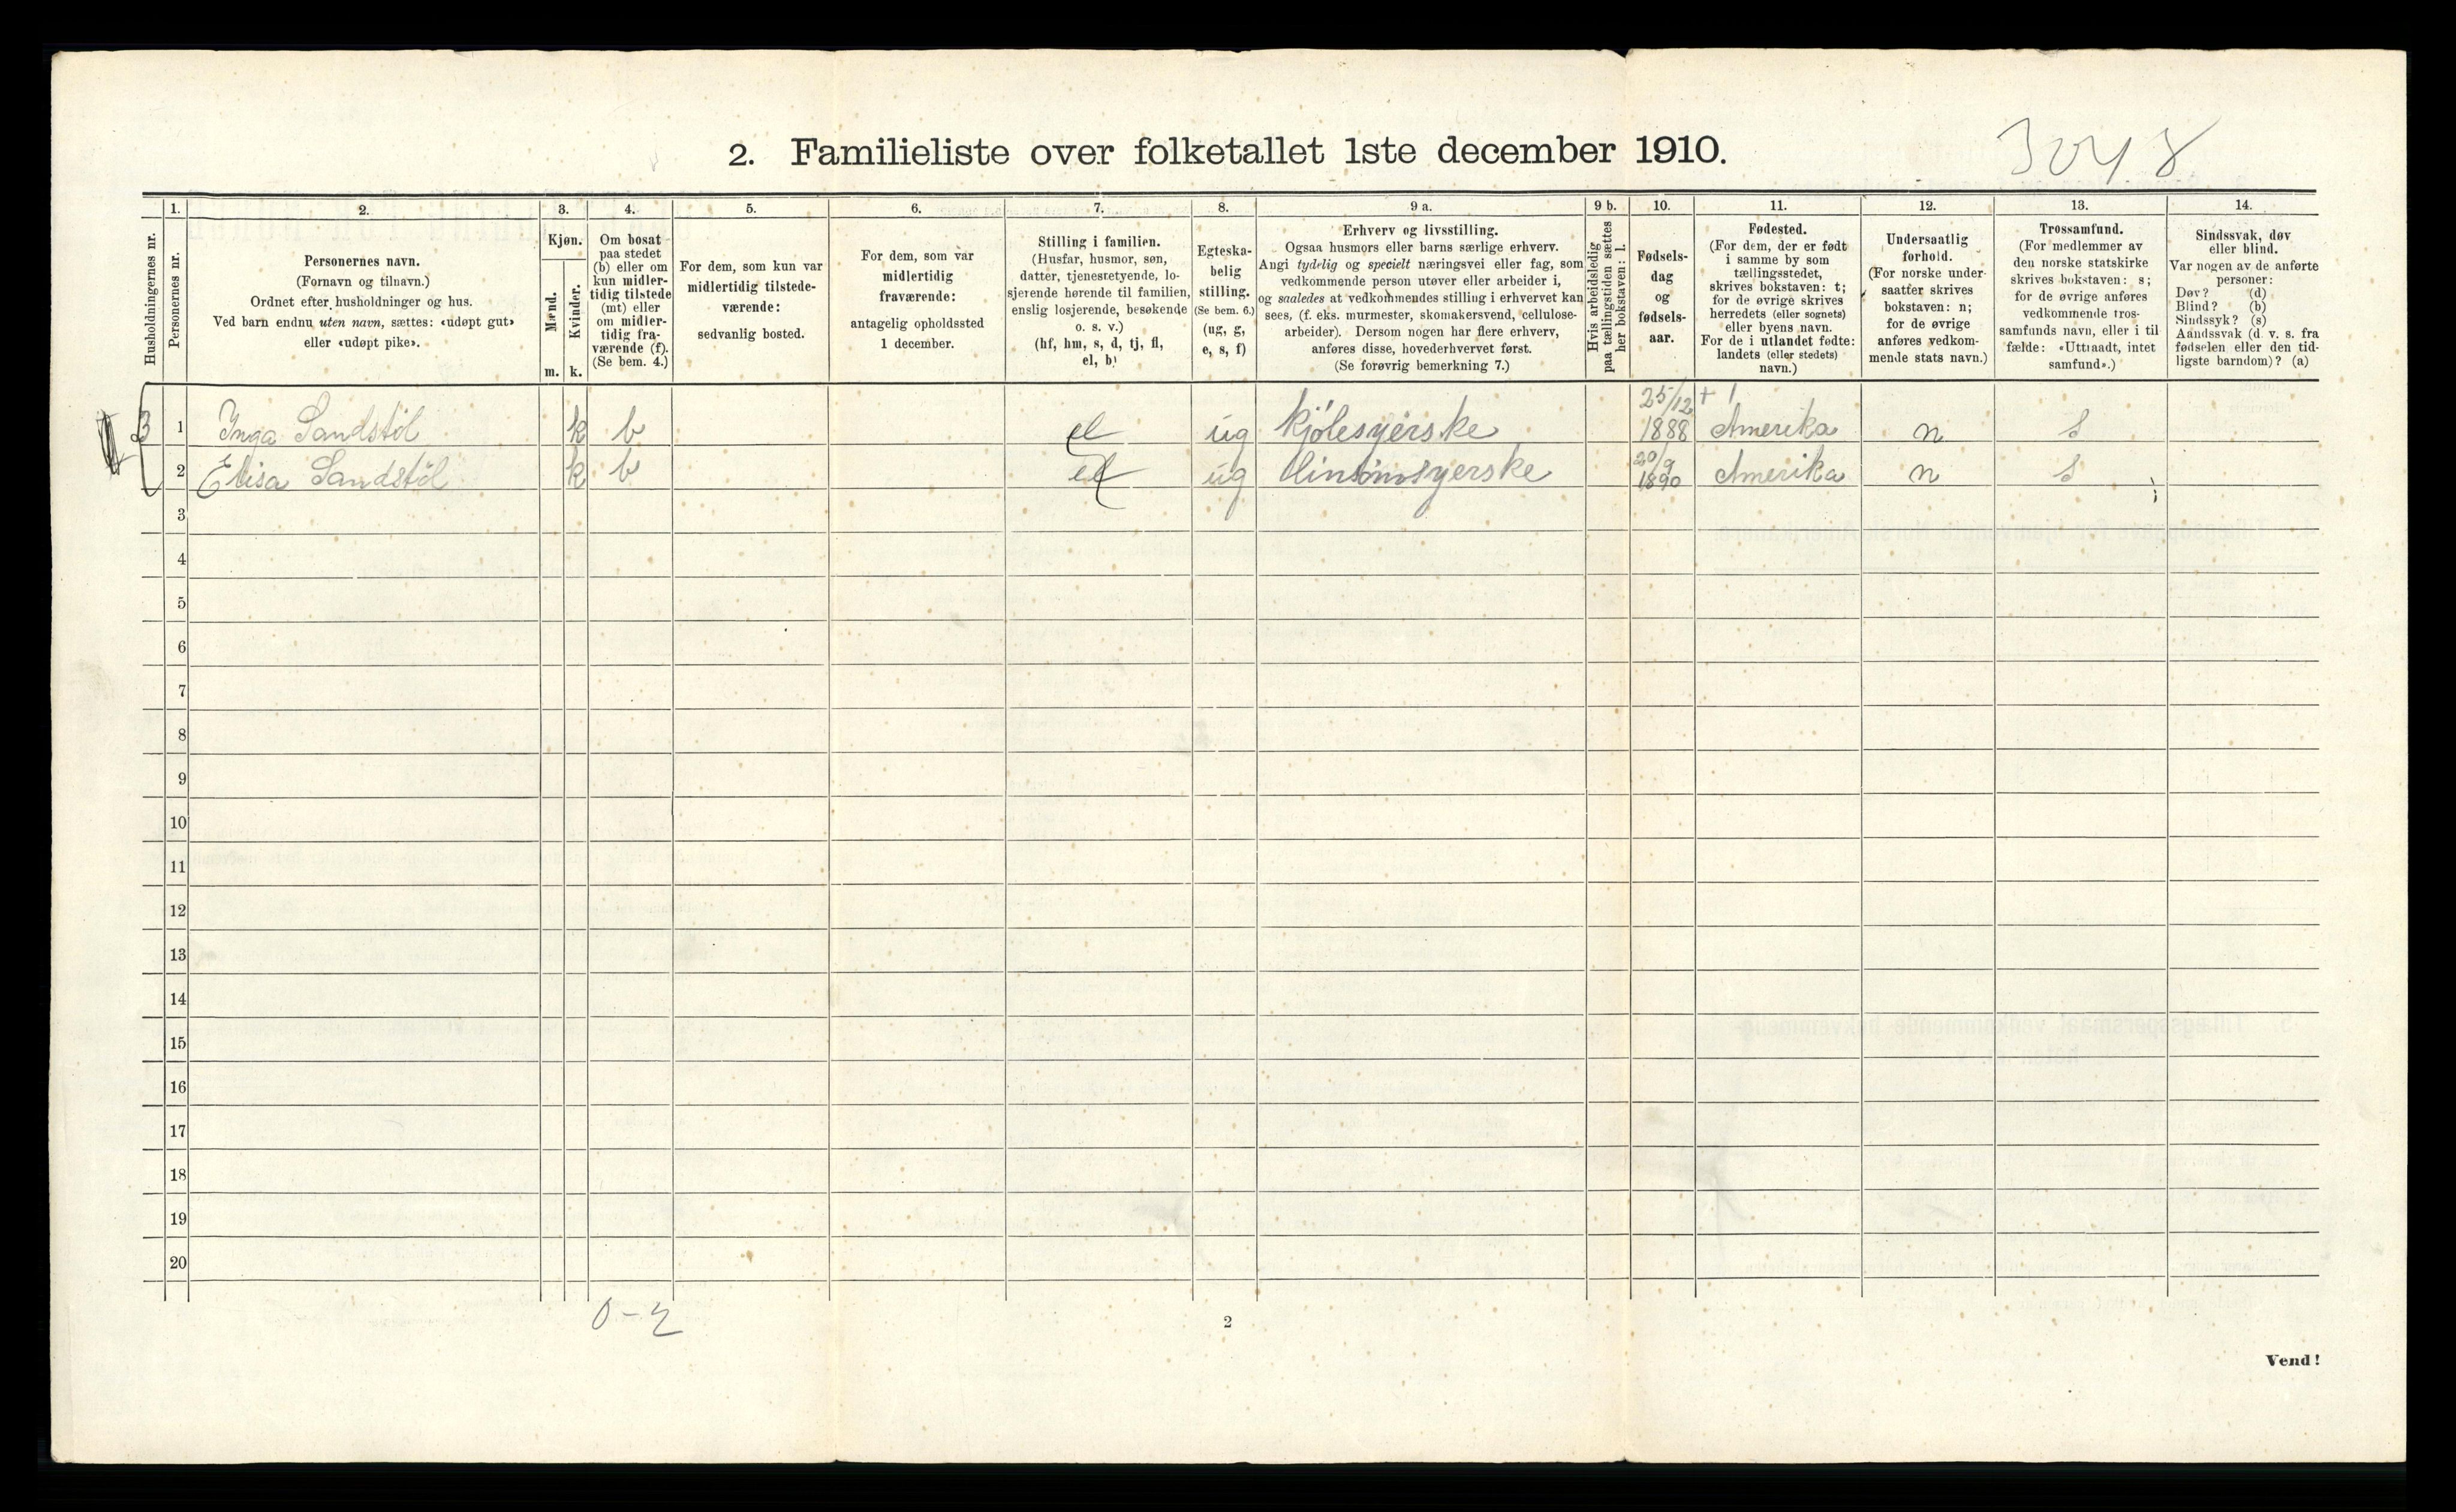 2. Familieliste over folketallet 1ste december 1910.
3048
Husholdningernes nr.
1.
Personernes nr.
2.
Personernes navn.
(Fornavn og tilnavn.)
Ordnet efter husholdninger og hus.
Ved barn endnu uten navn, sættes: «udøpt gut»
eller «udøpt pike».
3.
Kjøn.
Mænd.
m.
Kvinder.
k.
4.
Om bosat
paa stedet
(b) eller om
kun midler-
tidig tilstede
(mt) eller
om midler-
tidig fra-
værende (f).
(Se bem. 4.)
5.
For dem, som kun var
midlertidig tilstede-
værende:
sedvanlig bosted.
6.
For dem, som var
midlertidig
fraværende:
antagelig opholdssted
1 december.
7.
Stilling i familien.
(Husfar, husmor, søn,
datter, tjenestetyende, lo-
sjerende hørende til familien,
enslig losjerende, besøkende
o. s. v.)
(hf, hm, s, d, tj, fl,
el, b)
8.
Egteska-
belig
stilling.
(Se bem. 6.)
(ug, g,
e, s, f)
9 a.
Erhverv og livsstilling.
Ogsaa husmors eller barns særlige erhverv.
Angi tydelig og specielt næringsvei eller fag, som
vedkommende person utøver eller arbeider i,
og saaledes at vedkommendes stilling i erhvervet kan
sees, (f. eks. murmester, skomakersvend, cellulose-
arbeider). Dersom nogen har flere erhverv,
anføres disse, hovederhvervet først.
(Se forøvrig bemerkning 7.)
9 b.
Hvis arbeidsledig
paa tællingstiden sættes
her bokstaven: l.
10.
Fødsels-
dag
og
fødsels-
aar.
11.
Fødested.
(For dem, der er født
i samme by som
tællingsstedet,
skrives bokstaven: t;
for de øvrige skrives
herredets (eller sognets)
eller byens navn.
For de i utlandet fødte:
landets (eller stedets)
navn.)
12.
Undersaatlig
forhold.
(For norske under-
saatter skrives
bokstaven: n;
for de øvrige
anføres vedkom-
mende stats navn.)
13.
Trossamfund.
(For medlemmer av
den norske statskirke
skrives bokstaven: s;
for de øvrige anføres
vedkommende tros-
samfunds navn, eller i til-
fælde: «Uttraadt, intet
samfund».)
14.
Sindssvak, døv
eller blind.
Var nogen av de anførte
personer:
Døv? (d)
Blind? (b)
Sindssyk? (s)
Aandssvak (d. v. s. fra
fødselen eller den tid-
ligste barndom)? (a)
3 1 Inga Sandstöl k b el ug Kjölesyerske 25/12 1888 + 1 Amerika n s
2 Elisa Sandstöl k b el ug linsömsyerske 20/9 1890 Amerika n s
3
4
5
6
7
8
9
10
11
12
13
14
15
16
17
18
19
20
0-2
2
Vend!